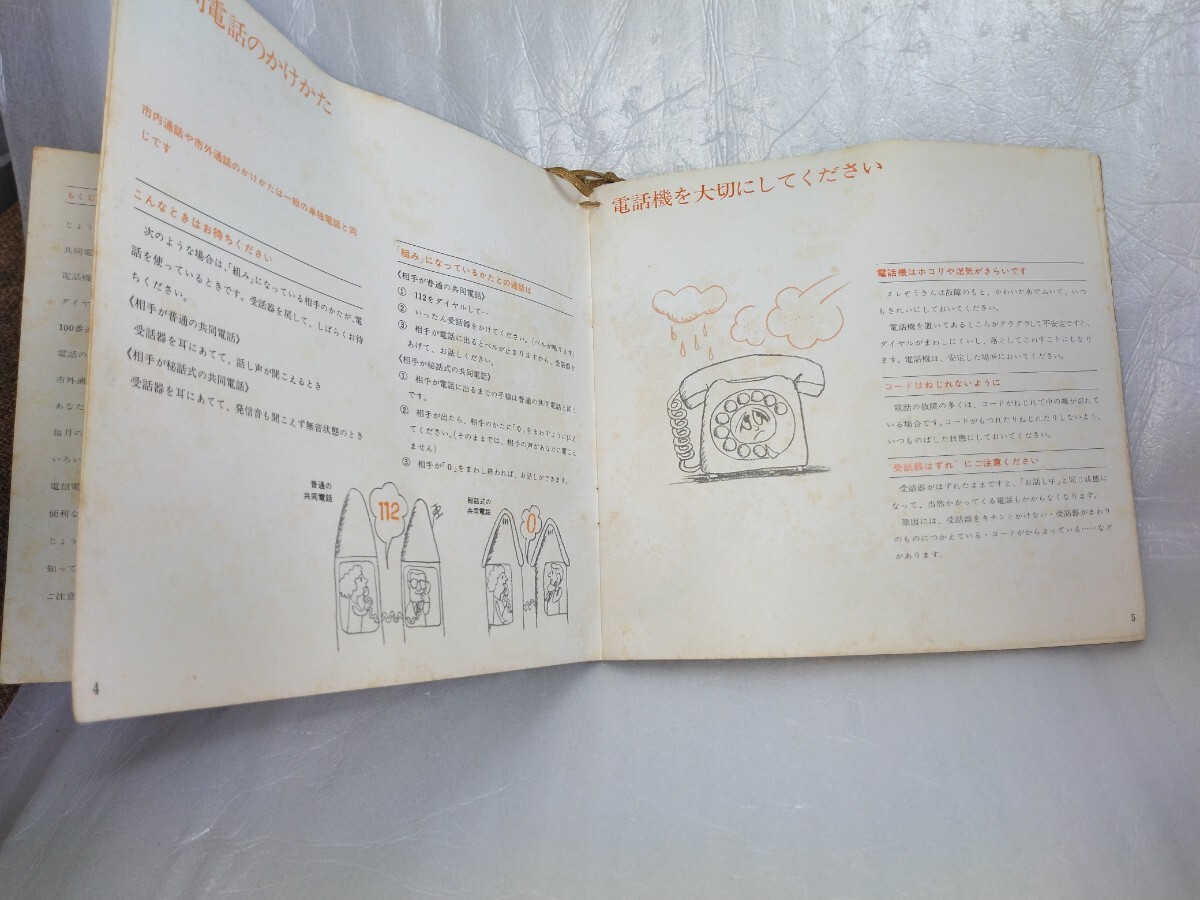 もくじ
じょう
共同電
電話機
ダイヤ
100番
電話の
市外通
あなた
毎月の
いろい
電信電
便利な
じょう
知って
ご注意
同電話のかけかた
市内通話や市外通話のかけかたは一般の単独電話と同
じです
こんなときはお待ちください
次のような場合は、「組み」になっている相手のかたが、電
話を使っているときです。受話器を戻して、しばらくお待
ちください。
《相手が普通の共同電話》
受話器を耳にあてて、話し声が聞こえるとき
《相手が秘話式の共同電話》
受話器を耳にあてて、発信音も聞こえず無音状態のとき
「組み」になっているかたとの通話は
《相手が普通の共同電話》
① 112をダイヤルして…
② いったん受話器をかけてください。(ベルが鳴ります)
③ 相手が電話に出るとベルが止まりますから、受話器を
あげて、お話しください。
《相手が秘話式の共同電話》
① 相手が電話に出るまでの手順は普通の共同電話と同じ
です。
② 相手が出たら、相手のかたに「0」をまわすように伝え
てください。(そのままでは、相手の声があなたに聞こえ
ません)
③ 相手が「0」をまわし終われば、お話しができます。
普通の
共同電話
112
秘話式の
共同電話
0
4
電話機を大切にしてください
電話機はホコリや湿気がきらいです
ヌレぞうきんは故障のもと、かわいた布でふいて、いつ
もきれいにしておいてください。
電話機を置いてあるところがグラグラして不安定ですと、
ダイヤルがまわしにくいし、落としてこわすことにもなり
ます。電話機は、安定した場所においてください。
コードはねじれないように
電話の故障の多くは、コードがねじれて中の線が切れて
いる場合です。コードがもつれたりねじれたりしないよう、
いつものばした状態にしておいてください。
"受話器はずれ"にご注意ください
受話器がはずれたままですと、「お話し中」と同じ状態に
なって、当然かかってくる電話もかからなくなります。
原因には、受話器をキチンとかけない・受話器がまわり
のものにつかえている・コードがからまっている……など
があります。
5